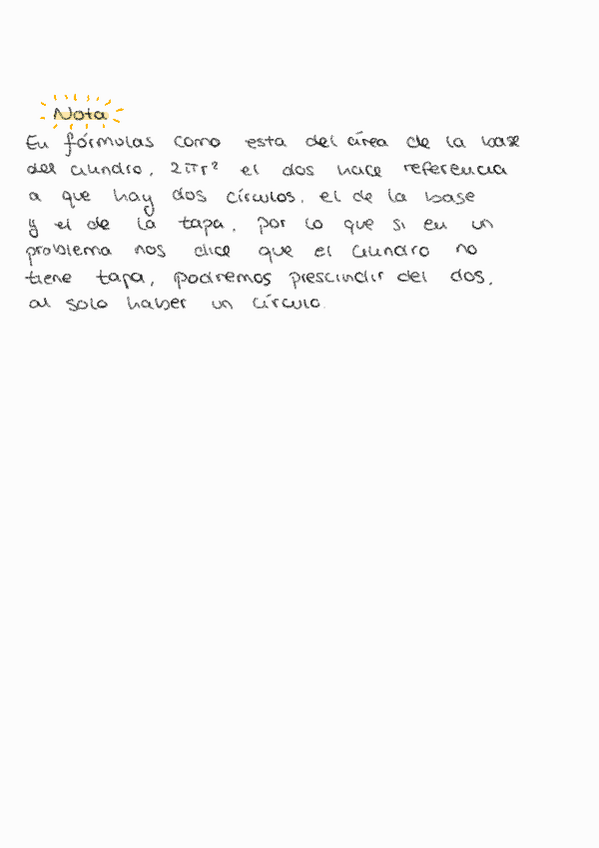 Nota
En fórmulas como esta del área de la base
del cilindro, 2πr² el dos hace referencia
a que hay dos círculos, el de la base
y el de la tapa, por lo que si en un
problema nos dice que el cilindro no
tiene tapa, podremos prescindir del dos,
al solo haber un círculo.